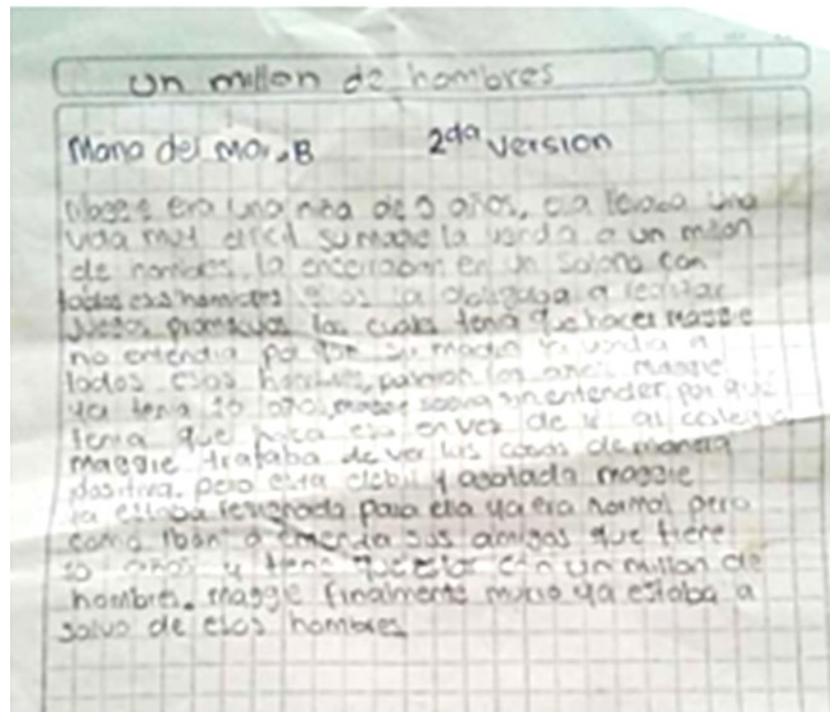 un millon de hombres
Maria del Mar. B 2da version
Maggie era una niña de 5 años, ella llevaba una
vida muy dificil su madre la vendia a un millon
de hombres, la encerraban en un salono con
todos esos hombres ellos la obligaba a realizar
Juegos promiscuos los cuales tenia que hacer maggie
no entendia por que su madre la vendia a
todos esos hombres, pasaron los años maggie
ya tenia 10 año, maggie sin entender por que
tenia que eso en vez de ir al colegio
maggie trataba de ver las cosas de manera
positiva. pero esta debil y agotada maggie
ya estaba resignada para ella ya era normal pero
como iban a entender sus amigas que tiene
10 años y tene que estar con un millon de
hombres. maggie finalmente murio ya estaba a
salvo de esos hombres